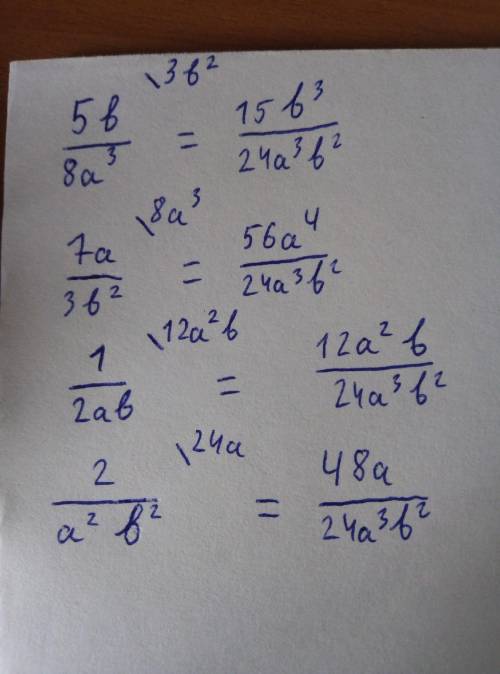 5b/8a³ \3b² = 15b³/24a³b²
7a/3b² \8a³ = 56a⁴/24a³b²
1/2ab \12a²b = 12a²b/24a³b²
2/a²b² \24a = 48a/24a³b²